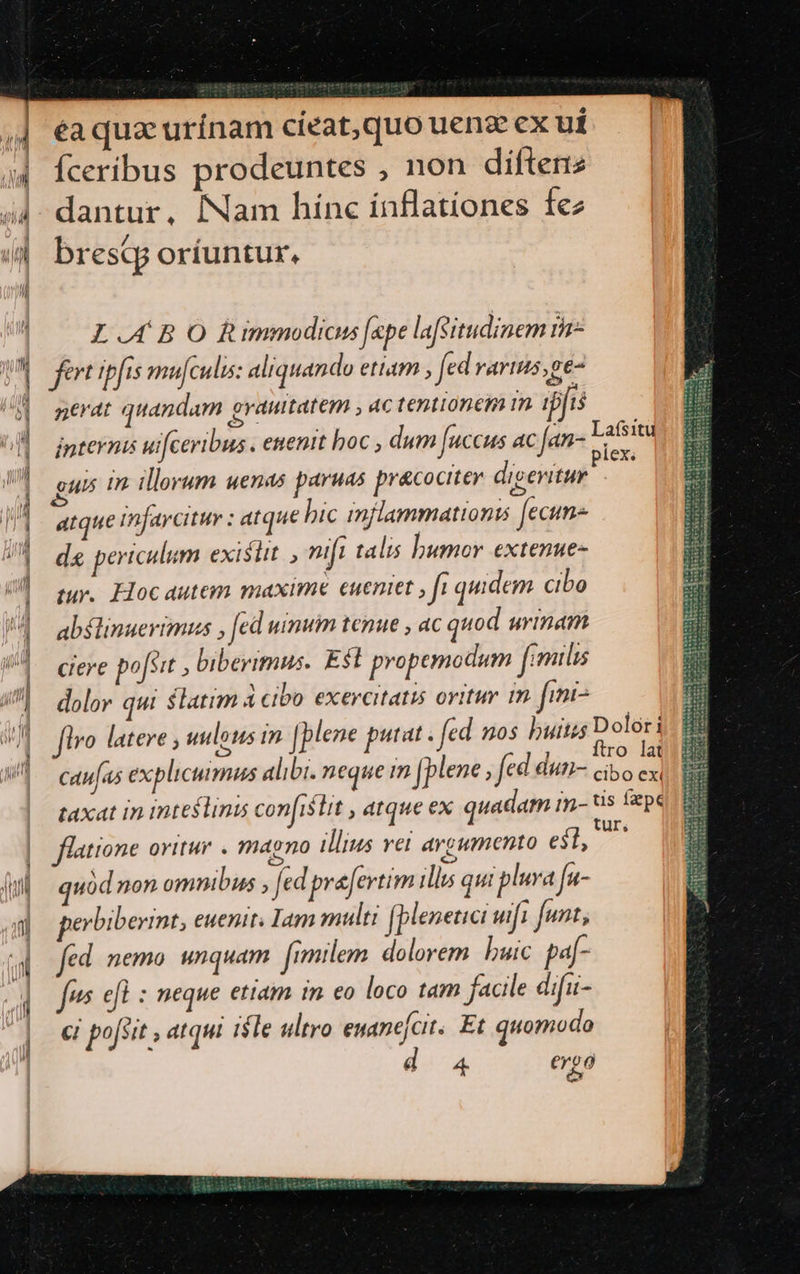 ea quæ urínam cíeat, quo uenæ ex uí
ſceríbus prodeuntes, non díſtenz
dantur, Nam hínc ínflatíones fez
bresq́ꝫ oríuntur.
LABOR immodicus ſæpe laſsitudinem in-
fert ipſis muſculis: aliquando etiam, ſed rarius, ge-
nerat quandam grauitatem, ac tentionem in ipſis
internis uiſceribus. euenit hoc, dum ſuccus ac ſan-
guis in illorum uenas paruas præcociter digeritur
atque infarcitur: atque hic inflammationis ſecun-
dæ periculum exiſtit, niſi talis humor extenue-
tur. Hoc autem maxime eueniet, ſi quidem cibo
abſtinuerimus, ſed uinum tenue, ac quod urinam
ciere poſsit, biberimus. Eſt propemodum ſimilis
dolor qui ſtatim à cibo exercitatis oritur in ſini-
ſtro latere, uulgus in ſplene putat. ſed nos huius
cauſas explicuimus alibi. neque in ſplene, ſed dun-
taxat in inteſtinis conſiſtit, atque ex quadam in-
flatione oritur. magno illius rei argumento eſt,
quòd non omnibus, ſed præſertim illis qui plura ſu-
perbiberint, euenit. Iam multi ſplenetici uiſi ſunt,
ſed nemo unquam ſimilem dolorem huic paſ-
ſus eſt: neque etiam in eo loco tam facile diſu-
ci poſsit, atqui iſte ultro euaneſcit. Et quomodo
d 4 ergo
Laſsitu
plex.
Dolor i
ſtro lat
cibo ex
tis ſæpe
tur.